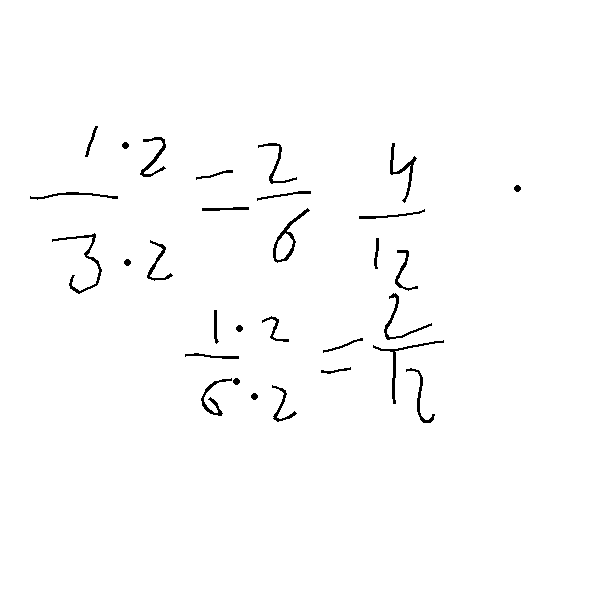 1·2/3·2 = 2/6 4/12 .
1·2/6·2 = 2/12